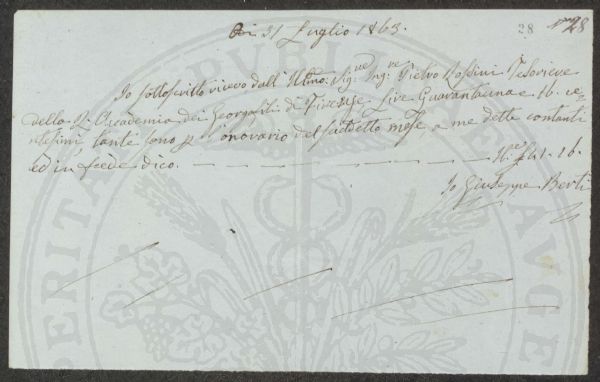 Di 31 Luglio 1863.
28 28
Io sottoscritto ricevo dall' Illmo. Sigre Ingre Pietro Rossini Tesoriere
della R. Accademia dei Georgofili di Firenze Lire Quarantuna e 16. ce-
ntesimi tante sono p l'onorario del suddetto mese a me dette contanti
ed in fede dico. — — — — — — — 41. 16.
Io Giuseppe Berti